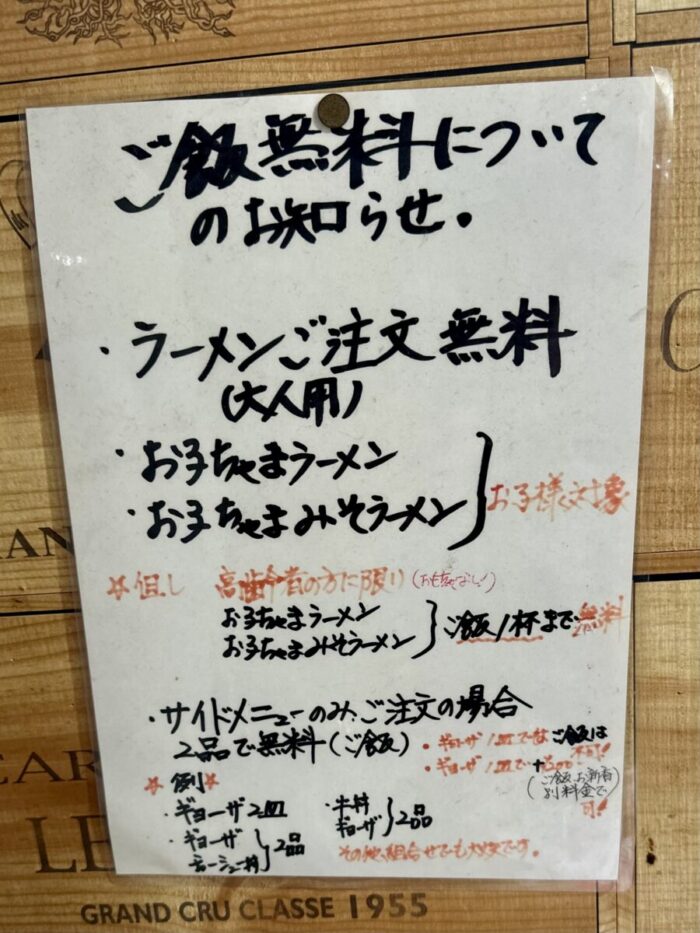 ご飯無料について
のお知らせ。
・ラーメンご注文無料
(大人用)
・お子ちゃまラーメン
・お子ちゃまみそラーメン
お子様対象
☆但し 高齢者の方に限り(おもちゃなし!)
お子ちゃまラーメン
お子ちゃまみそラーメン
ご飯1杯まで無料
・サイドメニューのみご注文の場合
2品で無料(ご飯)
・ギョーザ1皿ではご飯は
不可!
・ギョーザ1皿で+
(ご飯お新香
別料金で
可!
☆例
・ギョーザ2皿
・ギョーザ
チャーシュー丼
2品
・牛丼
ギョーザ
2品
その他組合せでも大丈夫です。
GRAND CRU CLASSE 1955